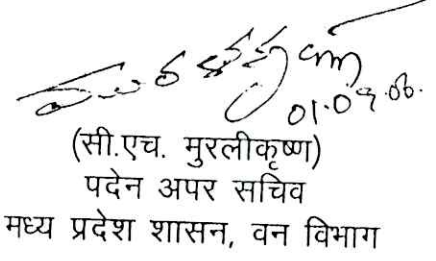 01.09.06.
(सी.एच. मुरलीकृष्ण)
पदेन अपर सचिव
मध्य प्रदेश शासन, वन विभाग